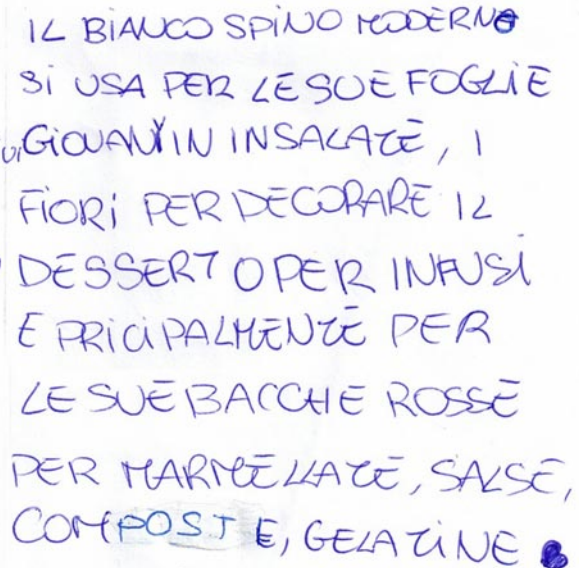 IL BIANCO SPINO MODERNO
SI USA PER LE SUE FOGLIE
GIOVANI IN INSALATE, I
FIORI PER DECORARE IL
DESSERT O PER INFUSI
E PRICIPALMENTE PER
LE SUE BACCHE ROSSE
PER MARMELLATE, SALSE,
COMPOSTE, GELATINE